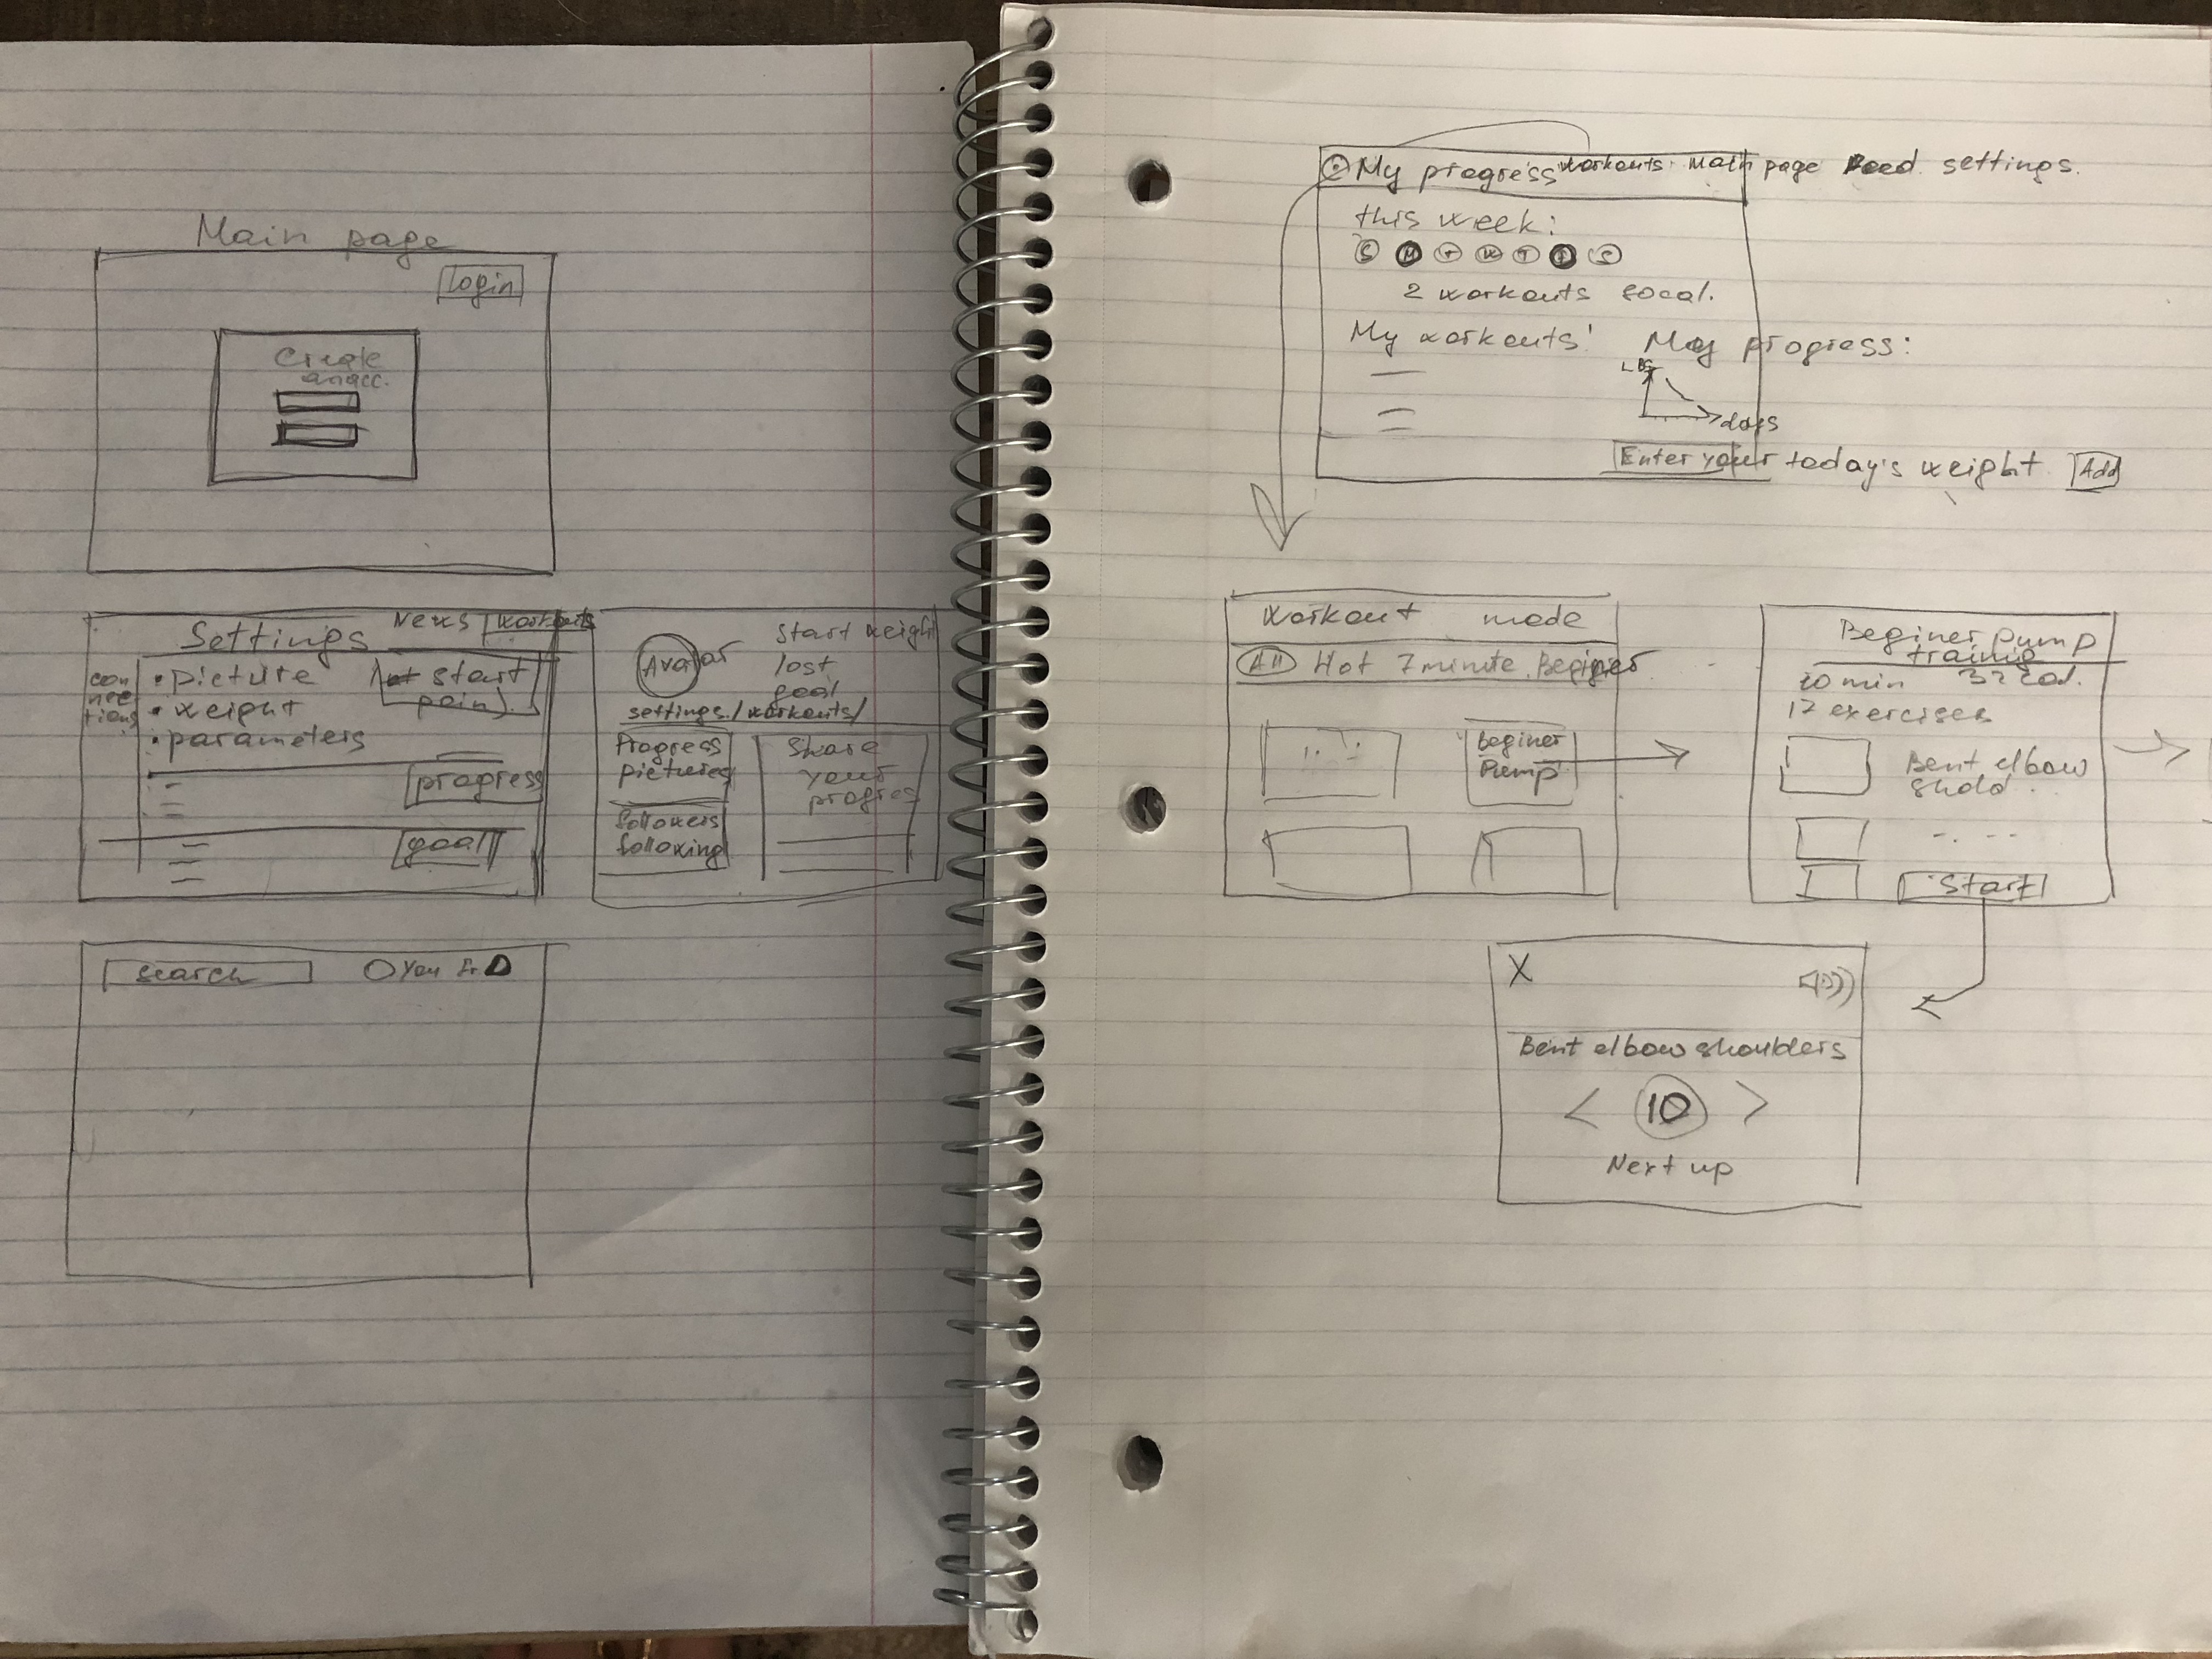 Main page
login
Create
an acc.
Settings News workouts
connections
• picture
start
• weight
• parameters
progress
goal
Avatar
Start weight
lost
goal
settings / workouts /
Progress
pictures
followers
following
Share
your
progres
search
You
My progress workouts Main page Feed settings.
this week:
S M T W T F S
2 workouts
My workouts!
My progress:
days
Enter your today's weight Add
Workout mode
All Hot 7 minute Beginer
Beginer
Pump
Beginer pump
trainig
17 exercises
Bent elbow
shold
Start
X
Bent elbow shoulders
< 10 >
Next up